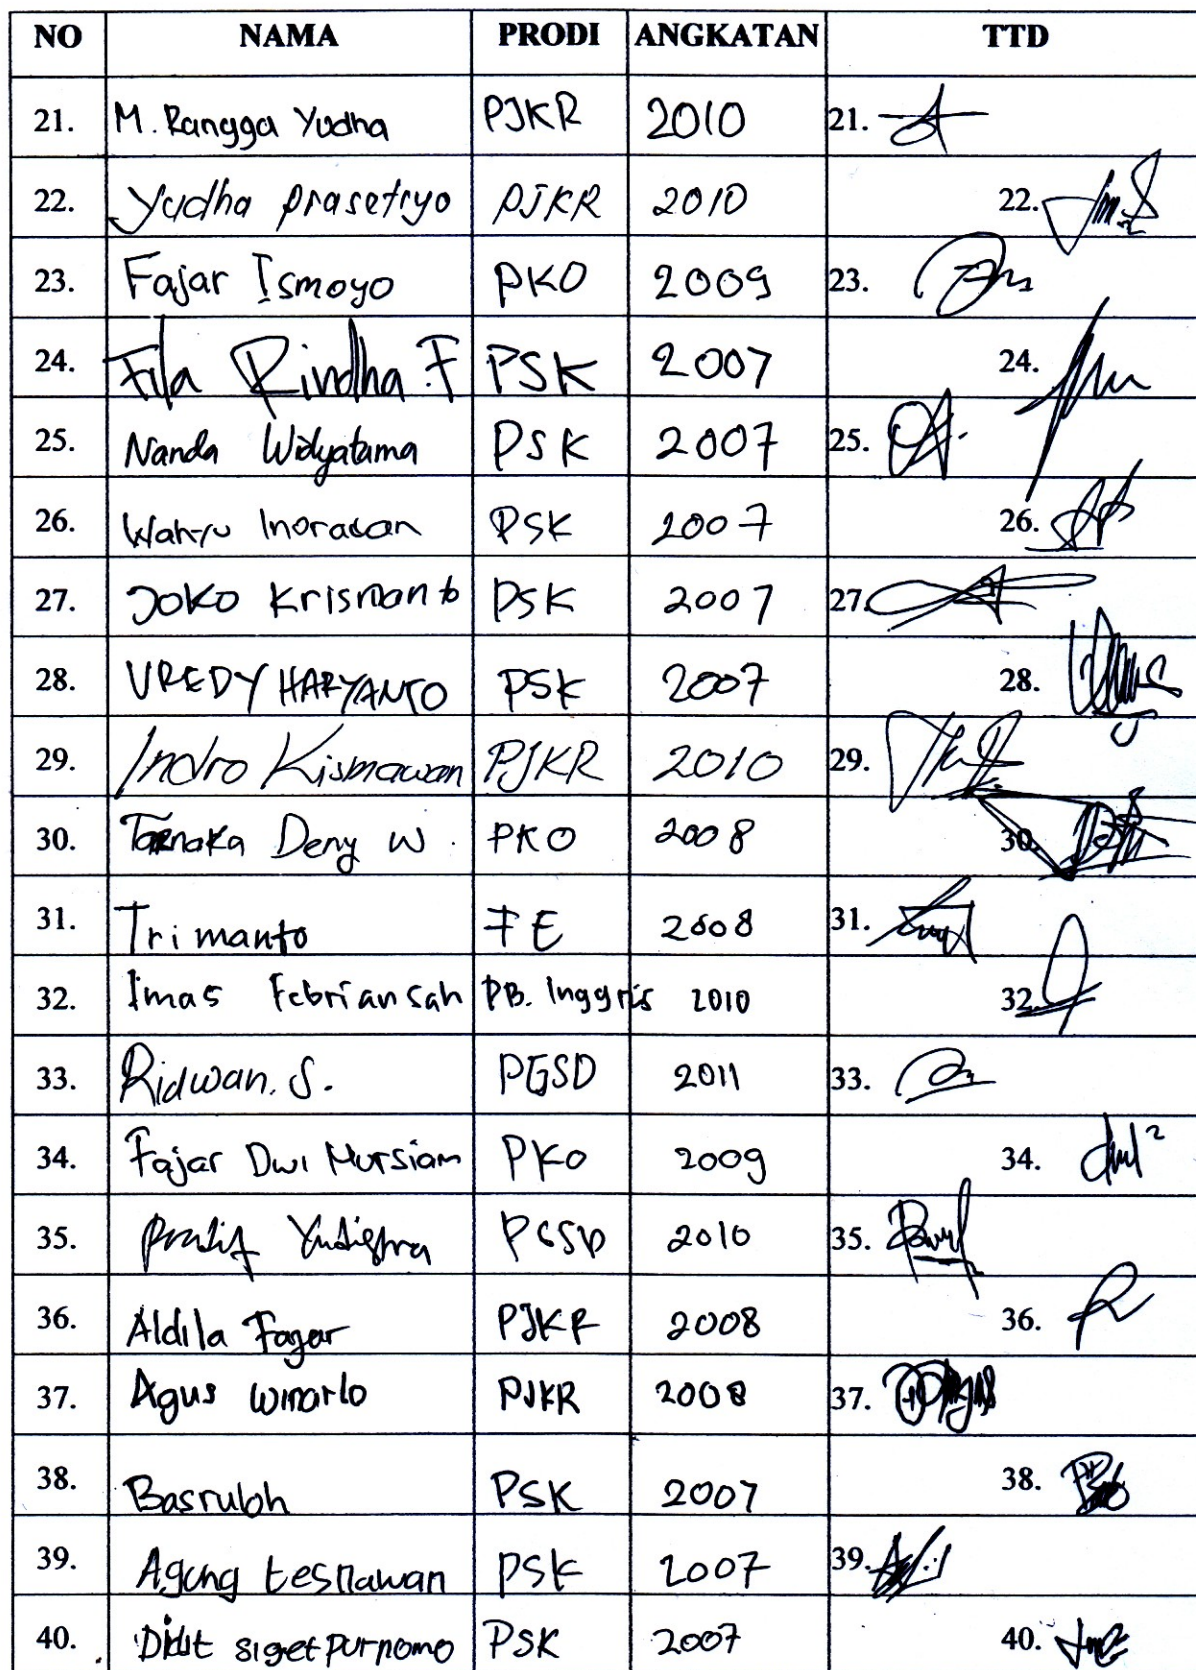 NO NAMA PRODI ANGKATAN TTD
21. M. Rangga Yudha PJKR 2010 21.
22. Yudha prasetyo PJKR 2010 22.
23. Fajar Ismoyo PKO 2009 23.
24. Fila Rindha .F PSK 2007 24.
25. Nanda Widyatama PSK 2007 25.
26. PSK 2007 26.
27. Joko Krismanto PSK 2007 27.
28. VREDY HARYANTO PSK 2007 28.
29. Indro Kismawan PJKR 2010 29.
30. Deny W. PKO 2008 30.
31. Tri manto FE 2008 31.
32. Imas Febriansah PB. Inggris 2010 32.
33. Ridwan. S. PGSD 2011 33.
34. Fajar Dwi Nursiam PKO 2009 34.
35. PGSD 2010 35.
36. Aldila Fajar PJKR 2008 36.
37. Agus winarto PJKR 2008 37.
38. Basruloh PSK 2007 38.
39. Agung PSK 2007 39.
40. Didit siget purnomo PSK 2007 40.